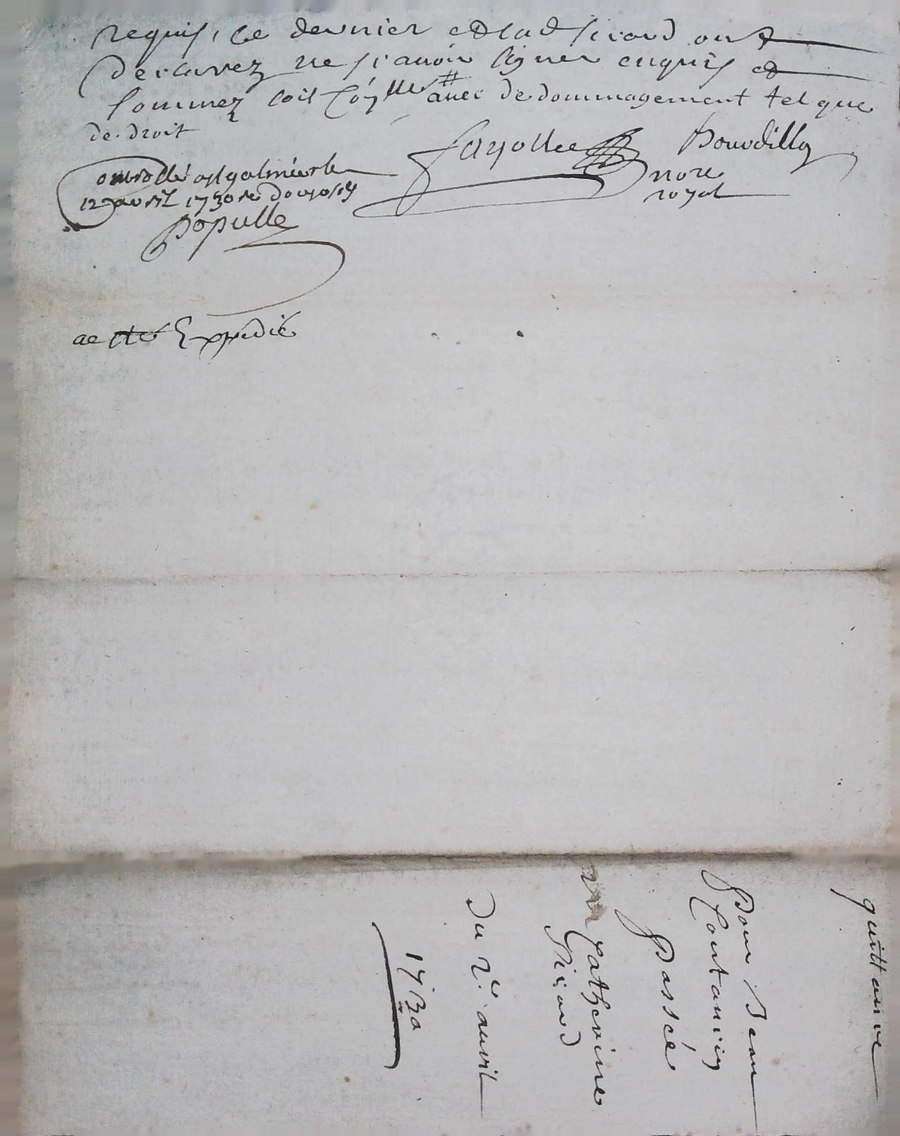 requis, ce dernier et lad sicard ont
declarez ne scavoir signer enquis et
sommez soit Côlle # avec dedommagement tel que
de droit
fayolle Bourdillon
no.re
royal
Controllé a st galmier le
12e avril 1730 Re douze s
Populle
a esté Expedié
quittance
Pour Jean
Coutanein
Passée
par Catherine
Sicard
Du 2e avril
1730